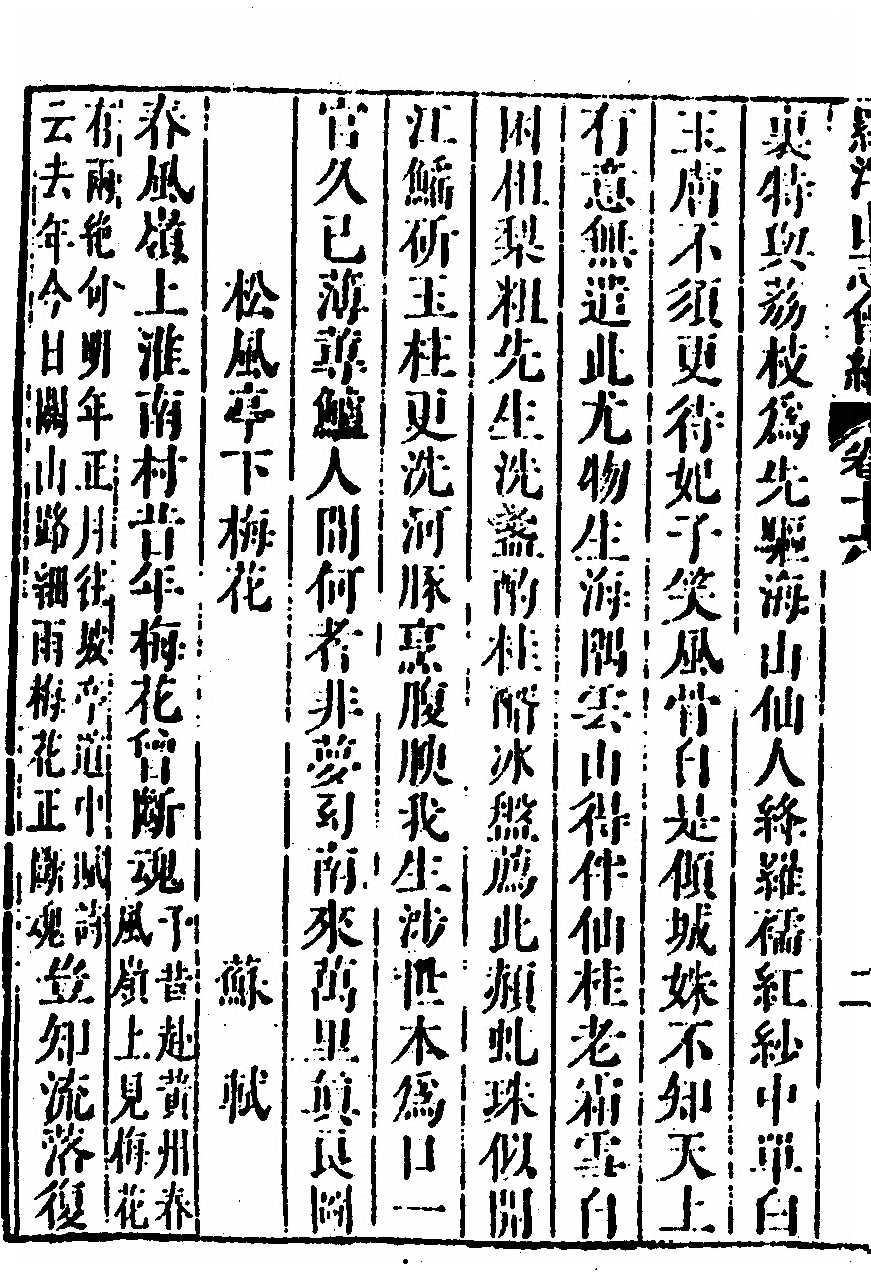 羅浮山志會編 卷十六 二
裏特與荔枝爲先驅海山仙人絳羅襦紅紗中單白
玉膚不須更待妃子笑風骨自是傾城姝不知天上
有意無遣此尤物生海隅雲山得伴仙桂老霜雪自
困柤梨粗先生洗盞酌桂醑冰盤薦此赬虬珠似開
江鰩斫玉柱更洗河豚烹腹腴我生涉世本爲口一
官久已薄蓴鱸人間何者非夢幻南來萬里眞良圖
松風亭下梅花 蘇軾
春風嶺上淮南村昔年梅花曾斷魂予昔赴黃州春
風嶺上見梅花
有兩絕句明年正月往岐亭道中賦詩
云去年今日關山路細雨梅花正斷魂豈知流落復